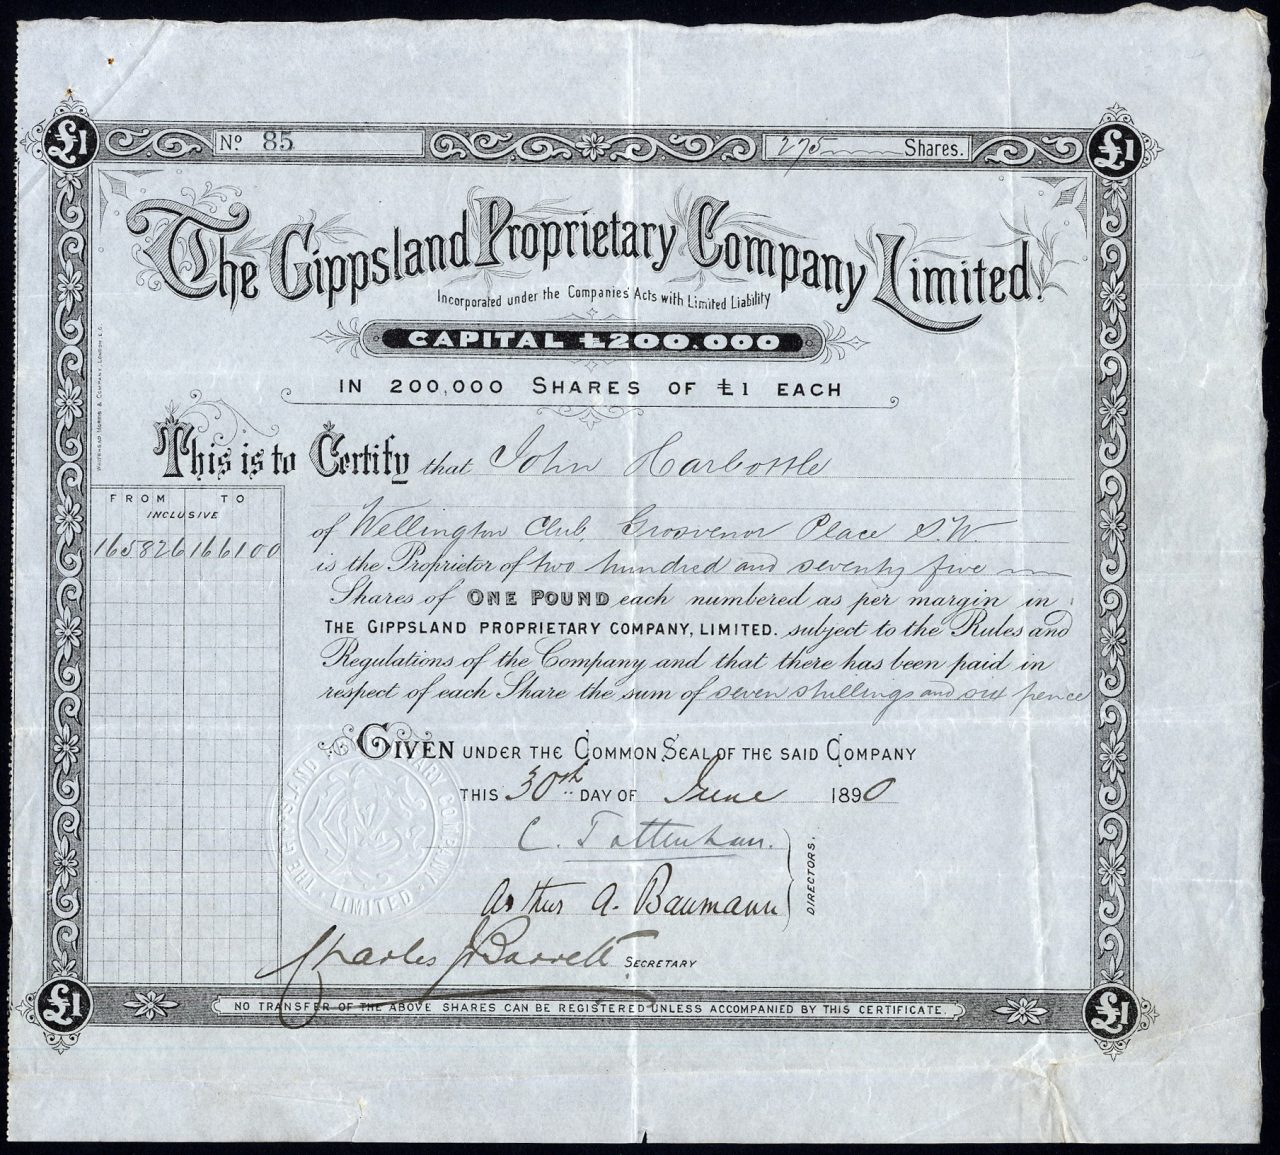 £1 £1
No 85 275 Shares.
The Gippsland Proprietary Company Limited.
Incorporated under the Companies' Acts with Limited Liability
CAPITAL £200.000
IN 200,000 SHARES OF £1 EACH
WHITEHEAD MORRIS & COMPANY, LONDON E.C.
This is to Certify that John Harbottle
FROM TO
INCLUSIVE
165826 166100
of Wellington Club, Grosvenor Place S.W
is the Proprietor of two hundred and seventy five
Shares of ONE POUND each numbered as per margin in
THE GIPPSLAND PROPRIETARY COMPANY, LIMITED. subject to the Rules and
Regulations of the Company and that there has been paid in
respect of each Share the sum of seven shillings and six pence
GIVEN UNDER THE COMMON SEAL OF THE SAID COMPANY
THIS 30th DAY OF June 1890
THE GIPPSLAND PROPRIETARY COMPANY LIMITED
C. Tottenham.
Arthur A. Baumann
DIRECTORS.
Charles J Barrett SECRETARY
£1 £1
NO TRANSFER OF THE ABOVE SHARES CAN BE REGISTERED UNLESS ACCOMPANIED BY THIS CERTIFICATE.